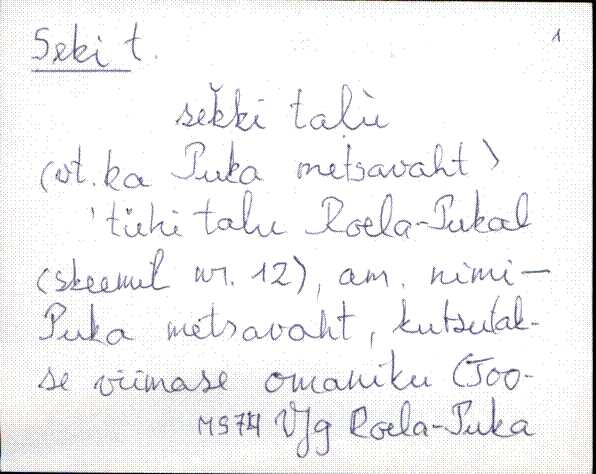 Seki t.
1
sekki talu
(vt. ka Puka metsavaht)
'tühi talu Roela-Pukal
(skeemil nr. 12), am. nimi-
Puka metsavaht, kutsutak-
se viimase omaniku (Joo-
Vjg Roela-Puka